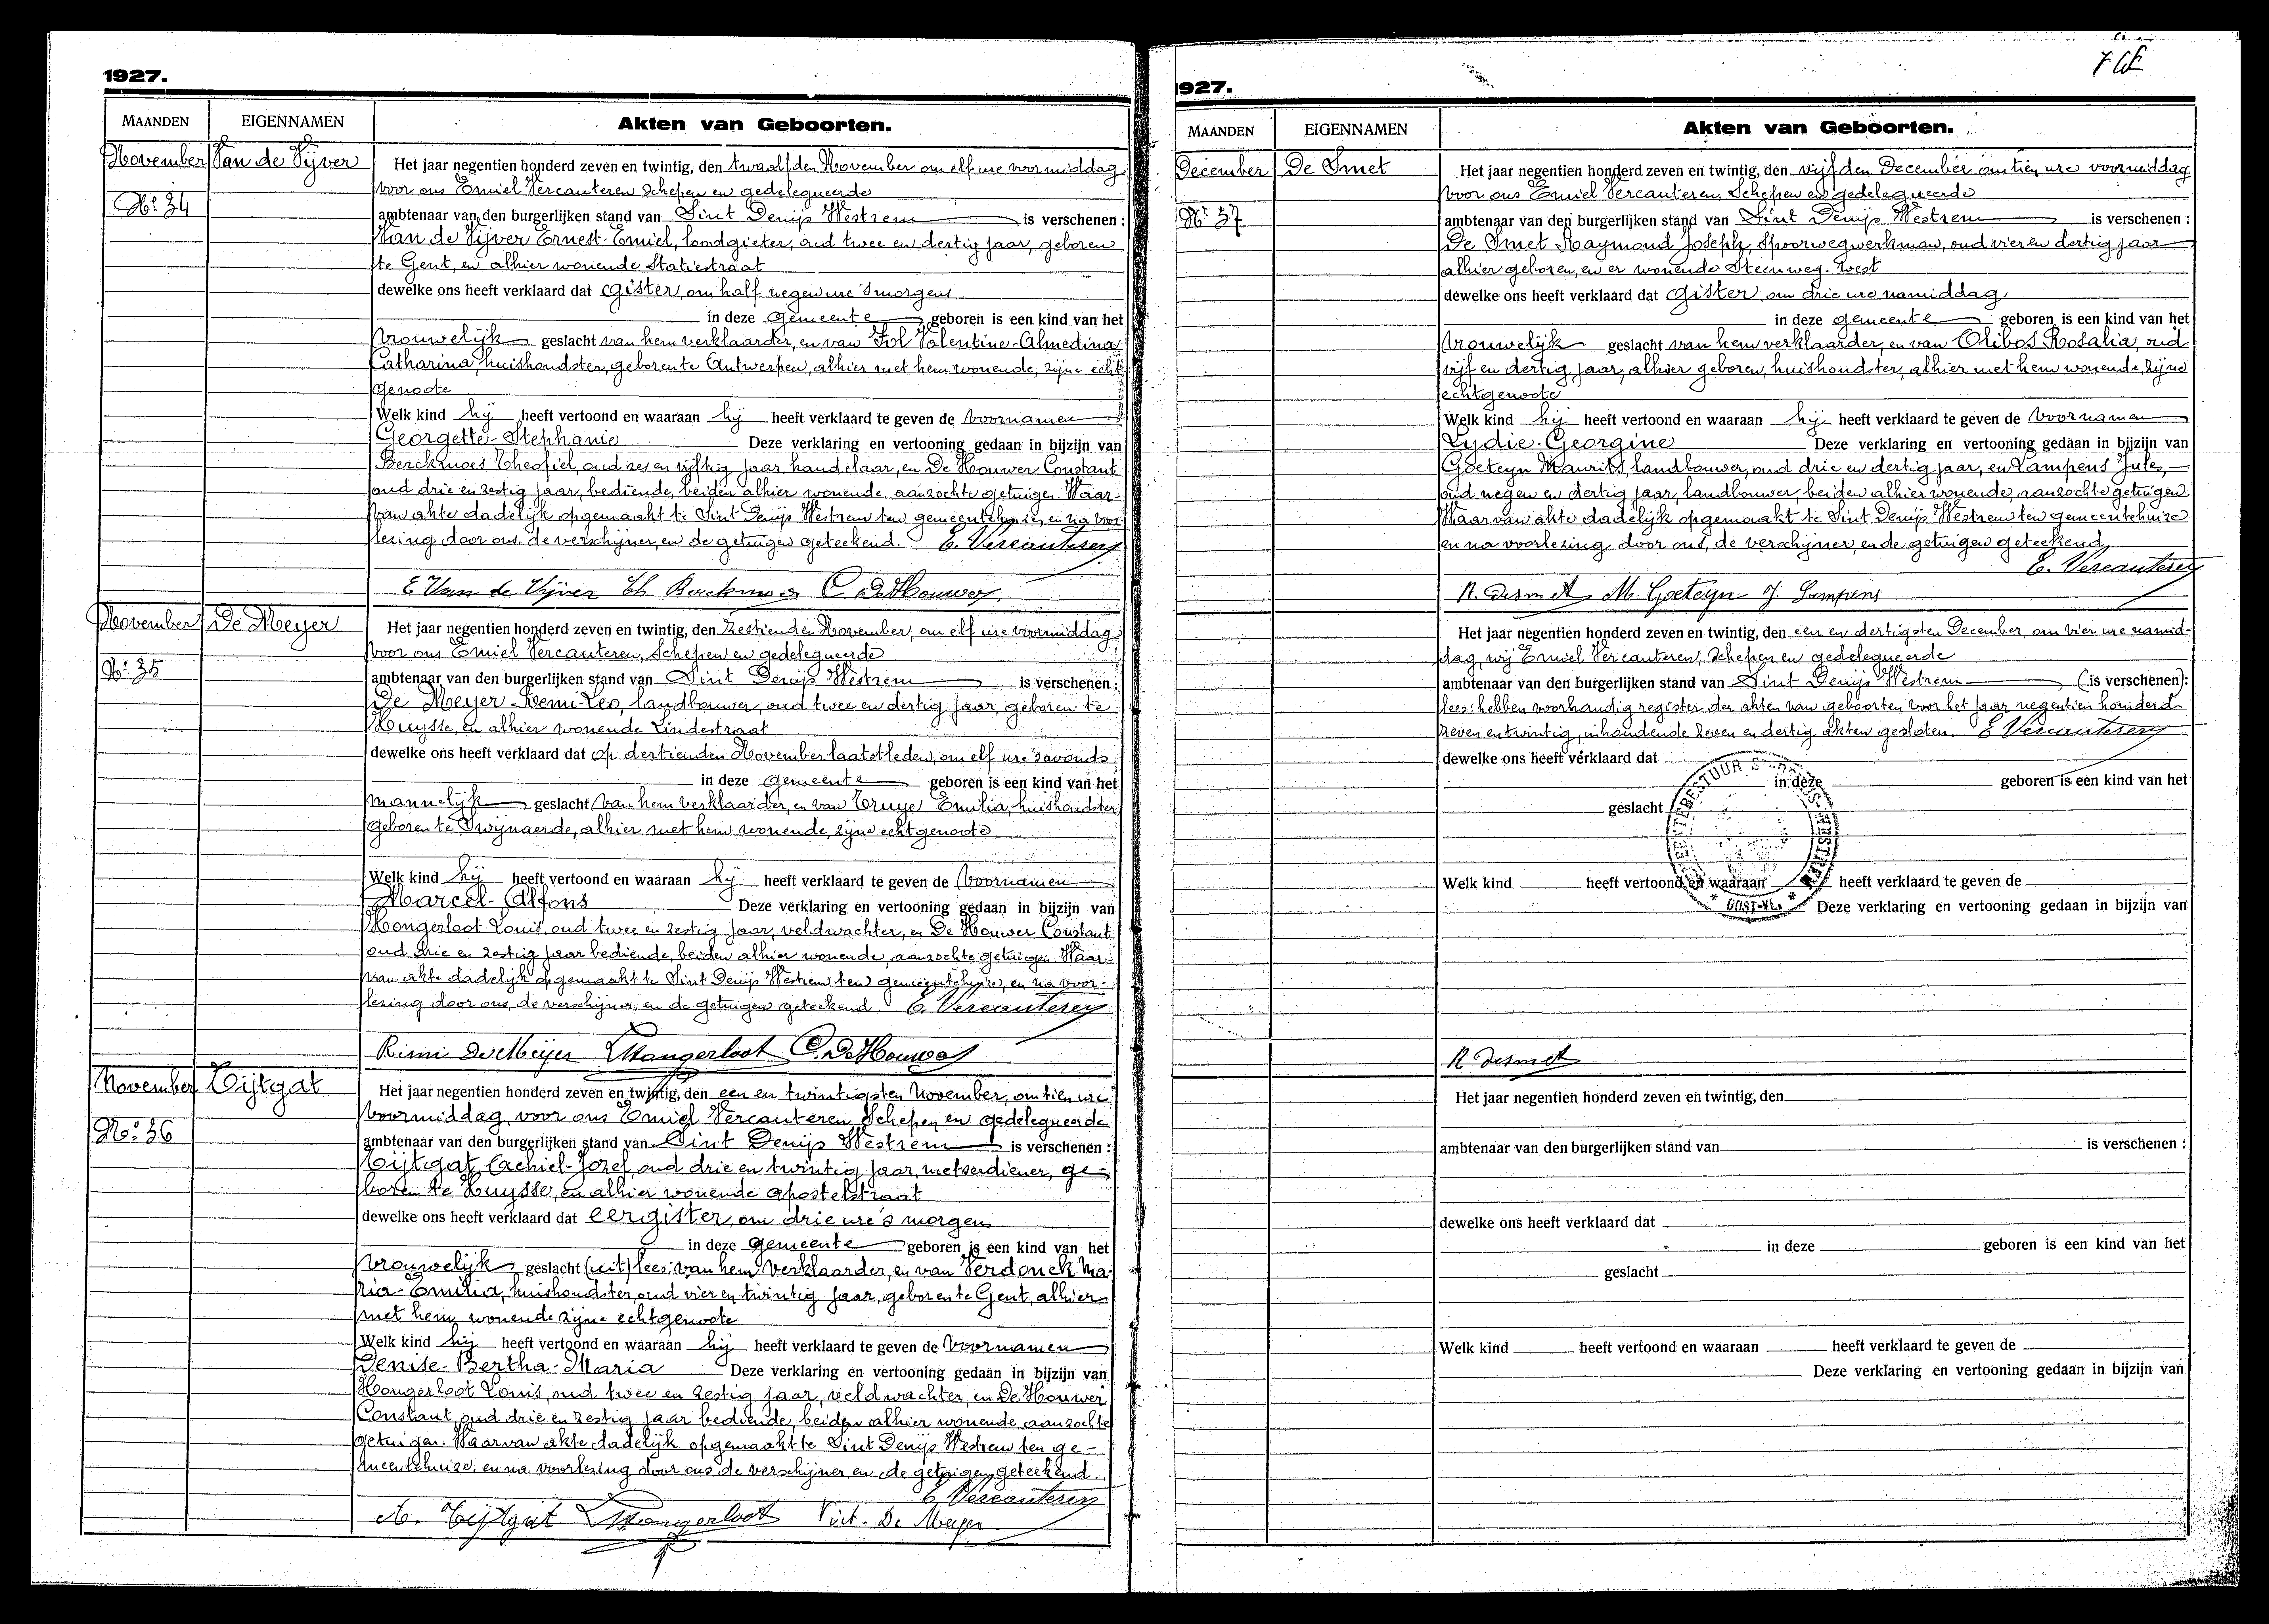 1927.
MAANDEN EIGENNAMEN Akten van Geboorten.
November Van de Vijver Het jaar negentien honderd zeven en twintig, den twaalfden November om elf ure voormiddag
voor ons Emiel Vercauteren Schepen en gedelegueerde
No: 34
ambtenaar van den burgerlijken stand van Sint Denijs Westrem is verschenen :
Van de Vijver Ernest-Emiel, loodgieter, oud twee en dertig jaar, geboren
te Gent, en alhier wonende Statiestraat
dewelke ons heeft verklaard dat gister, om half negen ure 's morgens
in deze gemeente geboren is een kind van het
vrouwelijk geslacht van hem verklaarder, en van Fol Valentine-Almedina
Catharina, huishoudster, geboren te Antwerpen, alhier met hem wonende, zijne echt
genoote
Welk kind hij heeft vertoond en waaraan hij heeft verklaard te geven de voornamen
Georgette-Stephanie Deze verklaring en vertooning gedaan in bijzijn van
Berckmoes Theofiel, oud zes en vijftig jaar, handelaar, en De Houwer Constant
oud drie en zestig jaar, bediende, beiden alhier wonende, aanzochte getuigen. Waar-
van akte dadelijk opgemaakt te Sint Denijs Westrem ten gemeentehuize, en na voor
lezing door ons, de verschijner, en de getuigen geteekend. E. Vercauteren
E Van de Vijver Th Berckmoes C. De Houwer
November De Meyer Het jaar negentien honderd zeven en twintig, den zestienden November, om elf ure voormiddag
voor ons Emiel Vercauteren, Schepen en gedelegueerde
No: 35
ambtenaar van den burgerlijken stand van Sint Denijs Westrem is verschenen :
De Meyer Remi-Leo, landbouwer, oud twee en dertig jaar, geboren te
Huysse, en alhier wonende Lindestraat
dewelke ons heeft verklaard dat op dertienden November laatstleden, om elf ure 's avonds
in deze gemeente geboren is een kind van het
mannelijk geslacht van hem verklaarder, en van Truye Emilia, huishoudster
geboren te Swijnaerde, alhier met hem wonende, zijne echtgenoote
Welk kind hij heeft vertoond en waaraan hij heeft verklaard te geven de voornamen
Marcel-Alfons Deze verklaring en vertooning gedaan in bijzijn van
Hongerloot Louis, oud twee en zestig jaar, veldwachter, en De Houwer Constant
oud drie en zestig jaar bediende, beiden alhier wonende, aanzochte getuigen. Waar-
van akte dadelijk opgemaakt te Sint Denijs Westrem ten gemeentehuize, en na voor-
lezing door ons, de verschijner, en de getuigen geteekend. E. Vercauteren
Remi De Meijer L Hongerloot C. De Houwer
November Tijtgat Het jaar negentien honderd zeven en twintig, den een en twintigsten November, om tien ure
voormiddag, voor ons Emiel Vercauteren Schepen en gedelegueerde
No: 36
ambtenaar van den burgerlijken stand van Sint Denijs Westrem is verschenen :
Tijtgat Achiel-Jozef, oud drie en twintig jaar, metserdiener, ge-
boren te Huysse, en alhier wonende apostelstraat
dewelke ons heeft verklaard dat eergister, om drie ure 's morgens
in deze gemeente geboren is een kind van het
vrouwelijk geslacht (uit) lees: van hem verklaarder, en van Verdonck Ma-
ria-Emilia, huishoudster, oud vier en twintig jaar, geboren te Gent, alhier
met hem wonende zijne echtgenoote
Welk kind hij heeft vertoond en waaraan hij heeft verklaard te geven de voornamen
Denise-Bertha-Maria Deze verklaring en vertooning gedaan in bijzijn van
Hongerloot Louis, oud twee en zestig jaar, veldwachter, en De Houwer
Constant, oud drie en zestig jaar bediende, beiden alhier wonende aanzochte
getuigen. Waarvan akte dadelijk opgemaakt te Sint Denijs Westrem ten ge-
meentehuize, en na voorlezing door ons de verschijner, en de getuigen geteekend.
E. Vercauteren
A. Tijtgat L Hongerloot Vict. De Meyer
927.
MAANDEN EIGENNAMEN Akten van Geboorten.
December De Smet Het jaar negentien honderd zeven en twintig, den vijfden December om tien ure voormiddag
voor ons Emiel Vercauteren, Schepen en gedelegueerde
No: 37
ambtenaar van den burgerlijken stand van Sint Denijs Westrem is verschenen :
De Smet Raymond Joseph, Spoorwegwerkman, oud vier en dertig jaar
alhier geboren, en er wonende Steenweg-West
dewelke ons heeft verklaard dat gister, om drie ure namiddag
in deze gemeente geboren is een kind van het
vrouwelijk geslacht van hem verklaarder, en van Olibos Rosalia, oud
vijf en dertig jaar, alhier geboren, huishoudster, alhier met hem wonende, zijne
echtgenoote
Welk kind hij heeft vertoond en waaraan hij heeft verklaard te geven de voornamen
Lydie-Georgine Deze verklaring en vertooning gedaan in bijzijn van
Goeteyn Maurits, landbouwer, oud drie en dertig jaar, en Lampens Jules,
oud negen en dertig jaar, landbouwer, beiden alhier wonende, aanzochte getuigen.
Waarvan akte dadelijk opgemaakt te Sint Denijs Westrem ten gemeentehuize
en na voorlezing door ons, de verschijner, en de getuigen geteekend
E. Vercauteren
R. Desmet M. Goeteyn J. Lampens
Het jaar negentien honderd zeven en twintig, den een en dertigsten December, om vier ure namid-
dag, wij Emiel Vercauteren, Schepen en gedelegueerde
ambtenaar van den burgerlijken stand van Sint Denijs Westrem (is verschenen):
lees: hebben voorhandig register der akten van geboorten voor het jaar negentien honderd
zeven en twintig, inhoudende zeven en dertig akten gesloten. E Vercauteren
dewelke ons heeft verklaard dat
in deze geboren is een kind van het
geslacht
Welk kind heeft vertoond en waaraan heeft verklaard te geven de
OOST-VL.
Deze verklaring en vertooning gedaan in bijzijn van
R Desmet
Het jaar negentien honderd zeven en twintig, den
ambtenaar van den burgerlijken stand van is verschenen :
dewelke ons heeft verklaard dat
in deze geboren is een kind van het
geslacht
Welk kind heeft vertoond en waaraan heeft verklaard te geven de
Deze verklaring en vertooning gedaan in bijzijn van